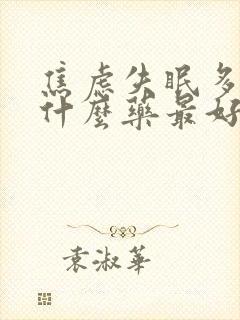 焦虑失眠多
什麼药最好
袁淑華